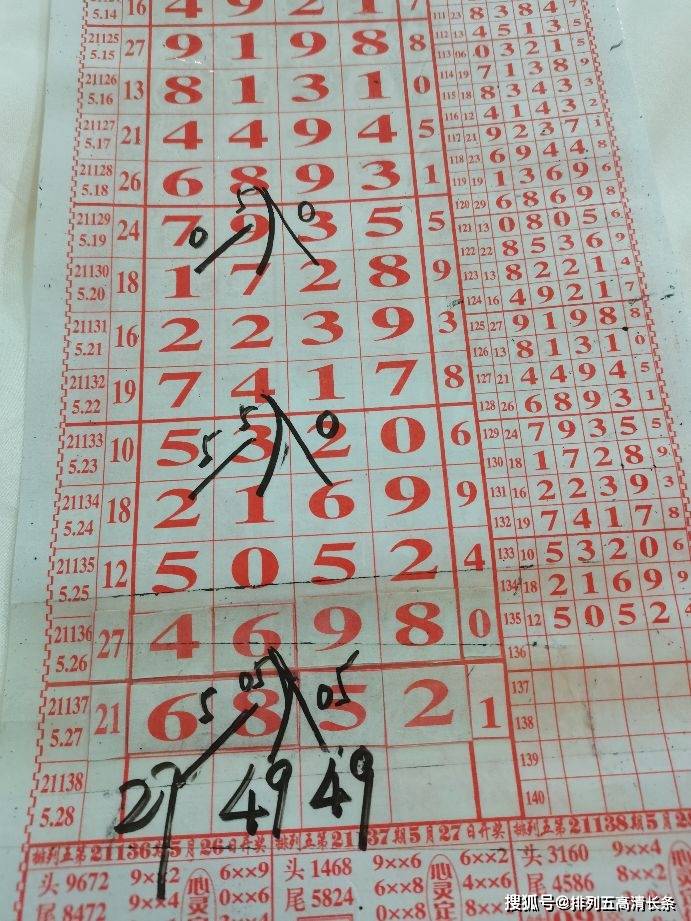 5.14 16 4 9 2 1 7
21125 5.15 27 9 1 9 8 8
21126 5.16 13 8 1 3 1 0
21127 5.17 21 4 4 9 4 5
21128 5.18 26 6 8 9 3 1
5 0
21129 5.19 24 7 9 3 5 5
0
21130 5.20 18 1 7 2 8 9
21131 5.21 16 2 2 3 9 3
21132 5.22 19 7 4 1 7 8
5 0
21133 5.23 10 5 3 2 0 6
5
21134 5.24 18 2 1 6 9 9
21135 5.25 12 5 0 5 2 4
21136 5.26 27 4 6 9 8 0
05 05
21137 5.27 21 6 8 5 2 1
5
21138 5.28 27 49 49
111 23 8 3 8 4 7
112 13 4 5 1 3 5
113 06 0 3 2 1 5
114 19 7 1 3 8 9
115 18 8 3 4 3 3
116 12 4 1 4 3 2
117 21 9 2 3 7 1
118 23 6 9 4 4 8
119 19 1 3 6 9 6
120 29 6 8 6 9 8
121 13 0 8 0 5 6
122 22 8 5 3 6 9
123 13 8 2 2 1 4
124 16 4 9 2 1 7
125 27 9 1 9 8 8
126 13 8 1 3 1 0
127 21 4 4 9 4 5
128 26 6 8 9 3 1
129 24 7 9 3 5 5
130 18 1 7 2 8 9
131 16 2 2 3 9 3
132 19 7 4 1 7 8
133 10 5 3 2 0 6
134 18 2 1 6 9 9
135 12 5 0 5 2 4
136
137
138
139
140
排列五第21136期5月26日开奖 排列五第21137期5月27日开奖 排列五第21138期5月28
头 9672 9××2 6××9 头 1468 9××6 6××2 头 3160 9××4
尾 8472 9××4 0××6 尾 5824 6××8 4××6 尾 4586 8××2
心灵 心灵 心灵
搜狐号@排列五高清长条